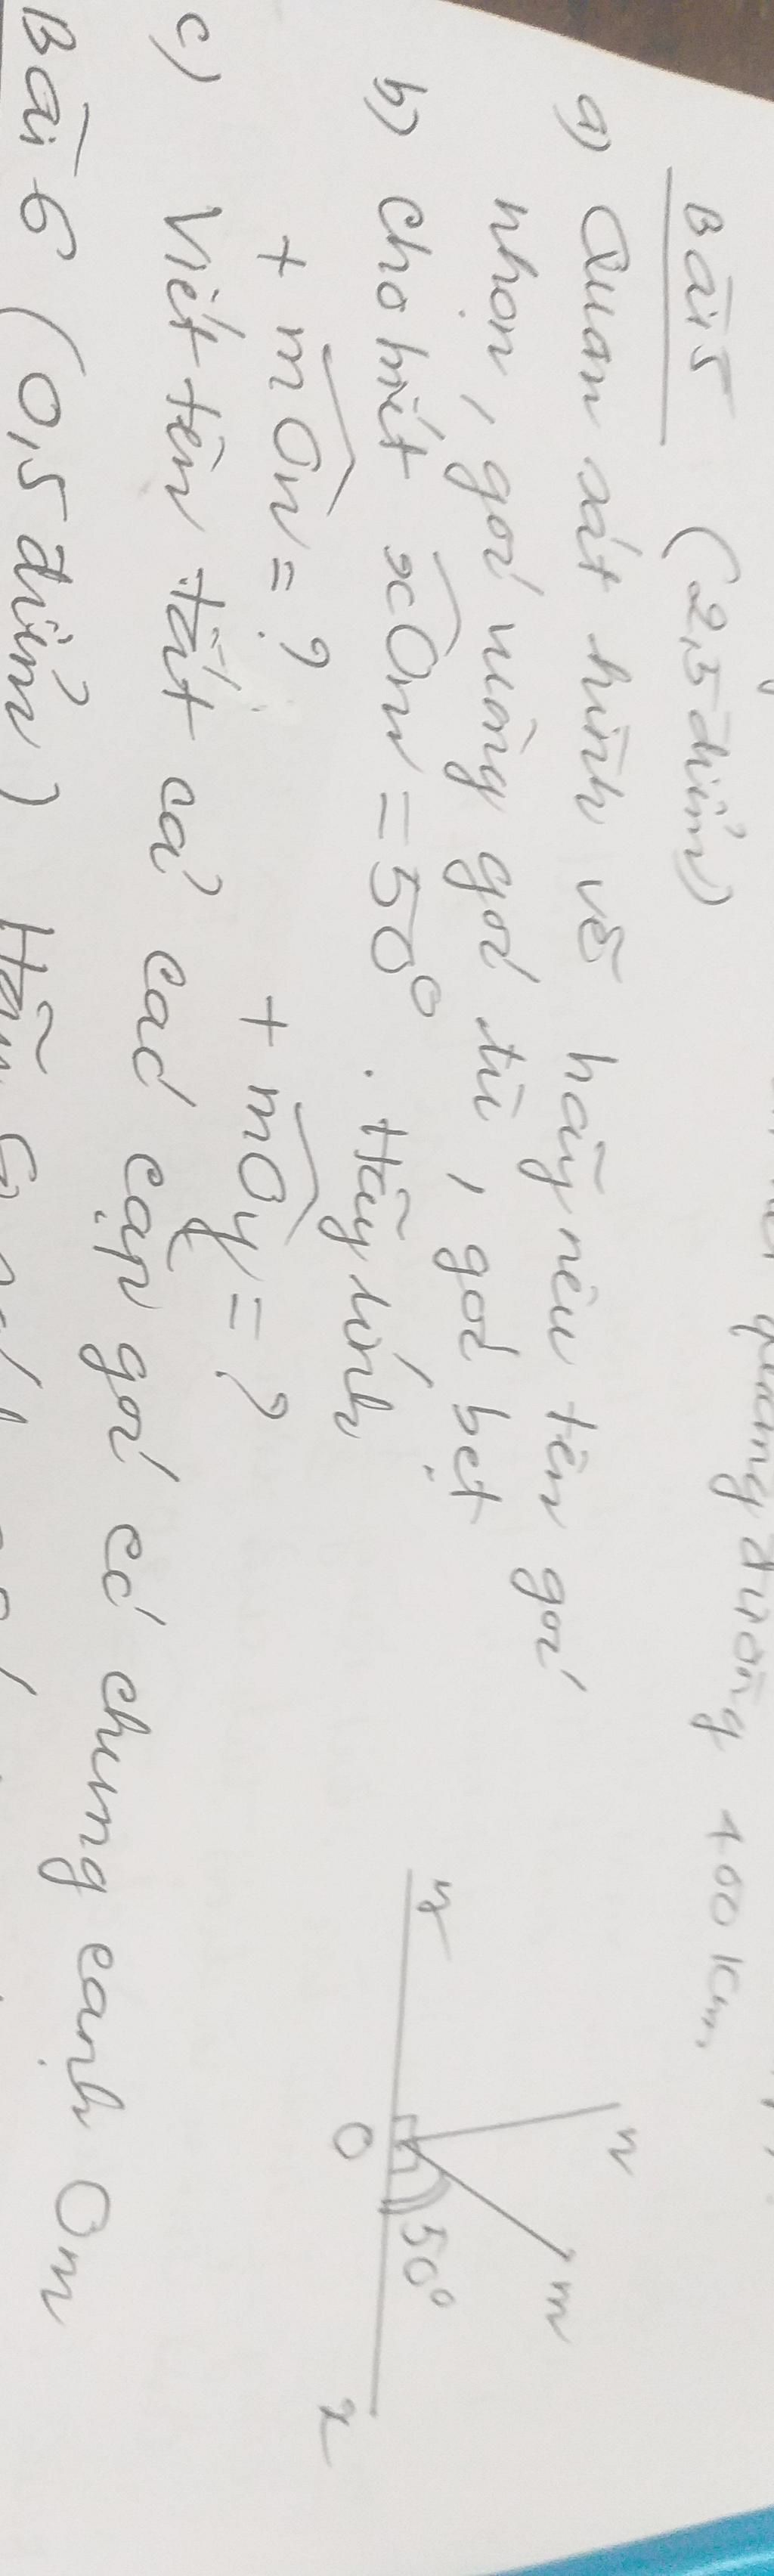 quãng đường 400 km.
Bài 5 (2,5 điểm)
a) Quan sát hình vẽ hãy nêu tên góc
nhọn, góc vuông góc tù, góc bẹt
b) Cho biết xOm = 50°. Hãy tính
+ mOn = ? + mOy = ?
c) Viết tên tất cả các cặp góc có chung cạnh Om
y
n
m
50°
O
x
Bài 6 (0,5 điểm)